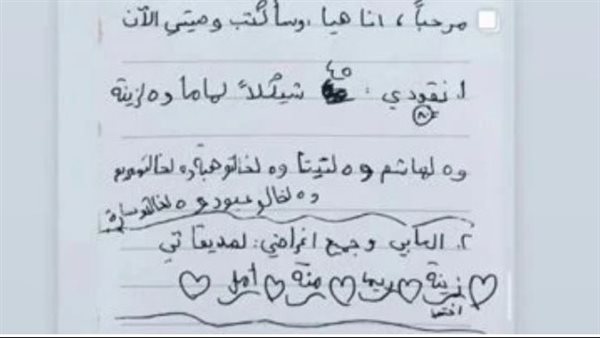 مرحباً ، انا هيا ، وسأكتب وصيتي الآن
١. نقودي : ٤٥ شيكلاً لماما و٥ لزينة
و٥ لهاشم و٥ لتيتا و٥ لخالتو هبة و٥ لخالتو مريم
و٥ لخالو عبود و٥ لخالتو سارة
٢. العابي وجميع اغراضي : لصديقاتي
زينة ريما منة أمل
اختها